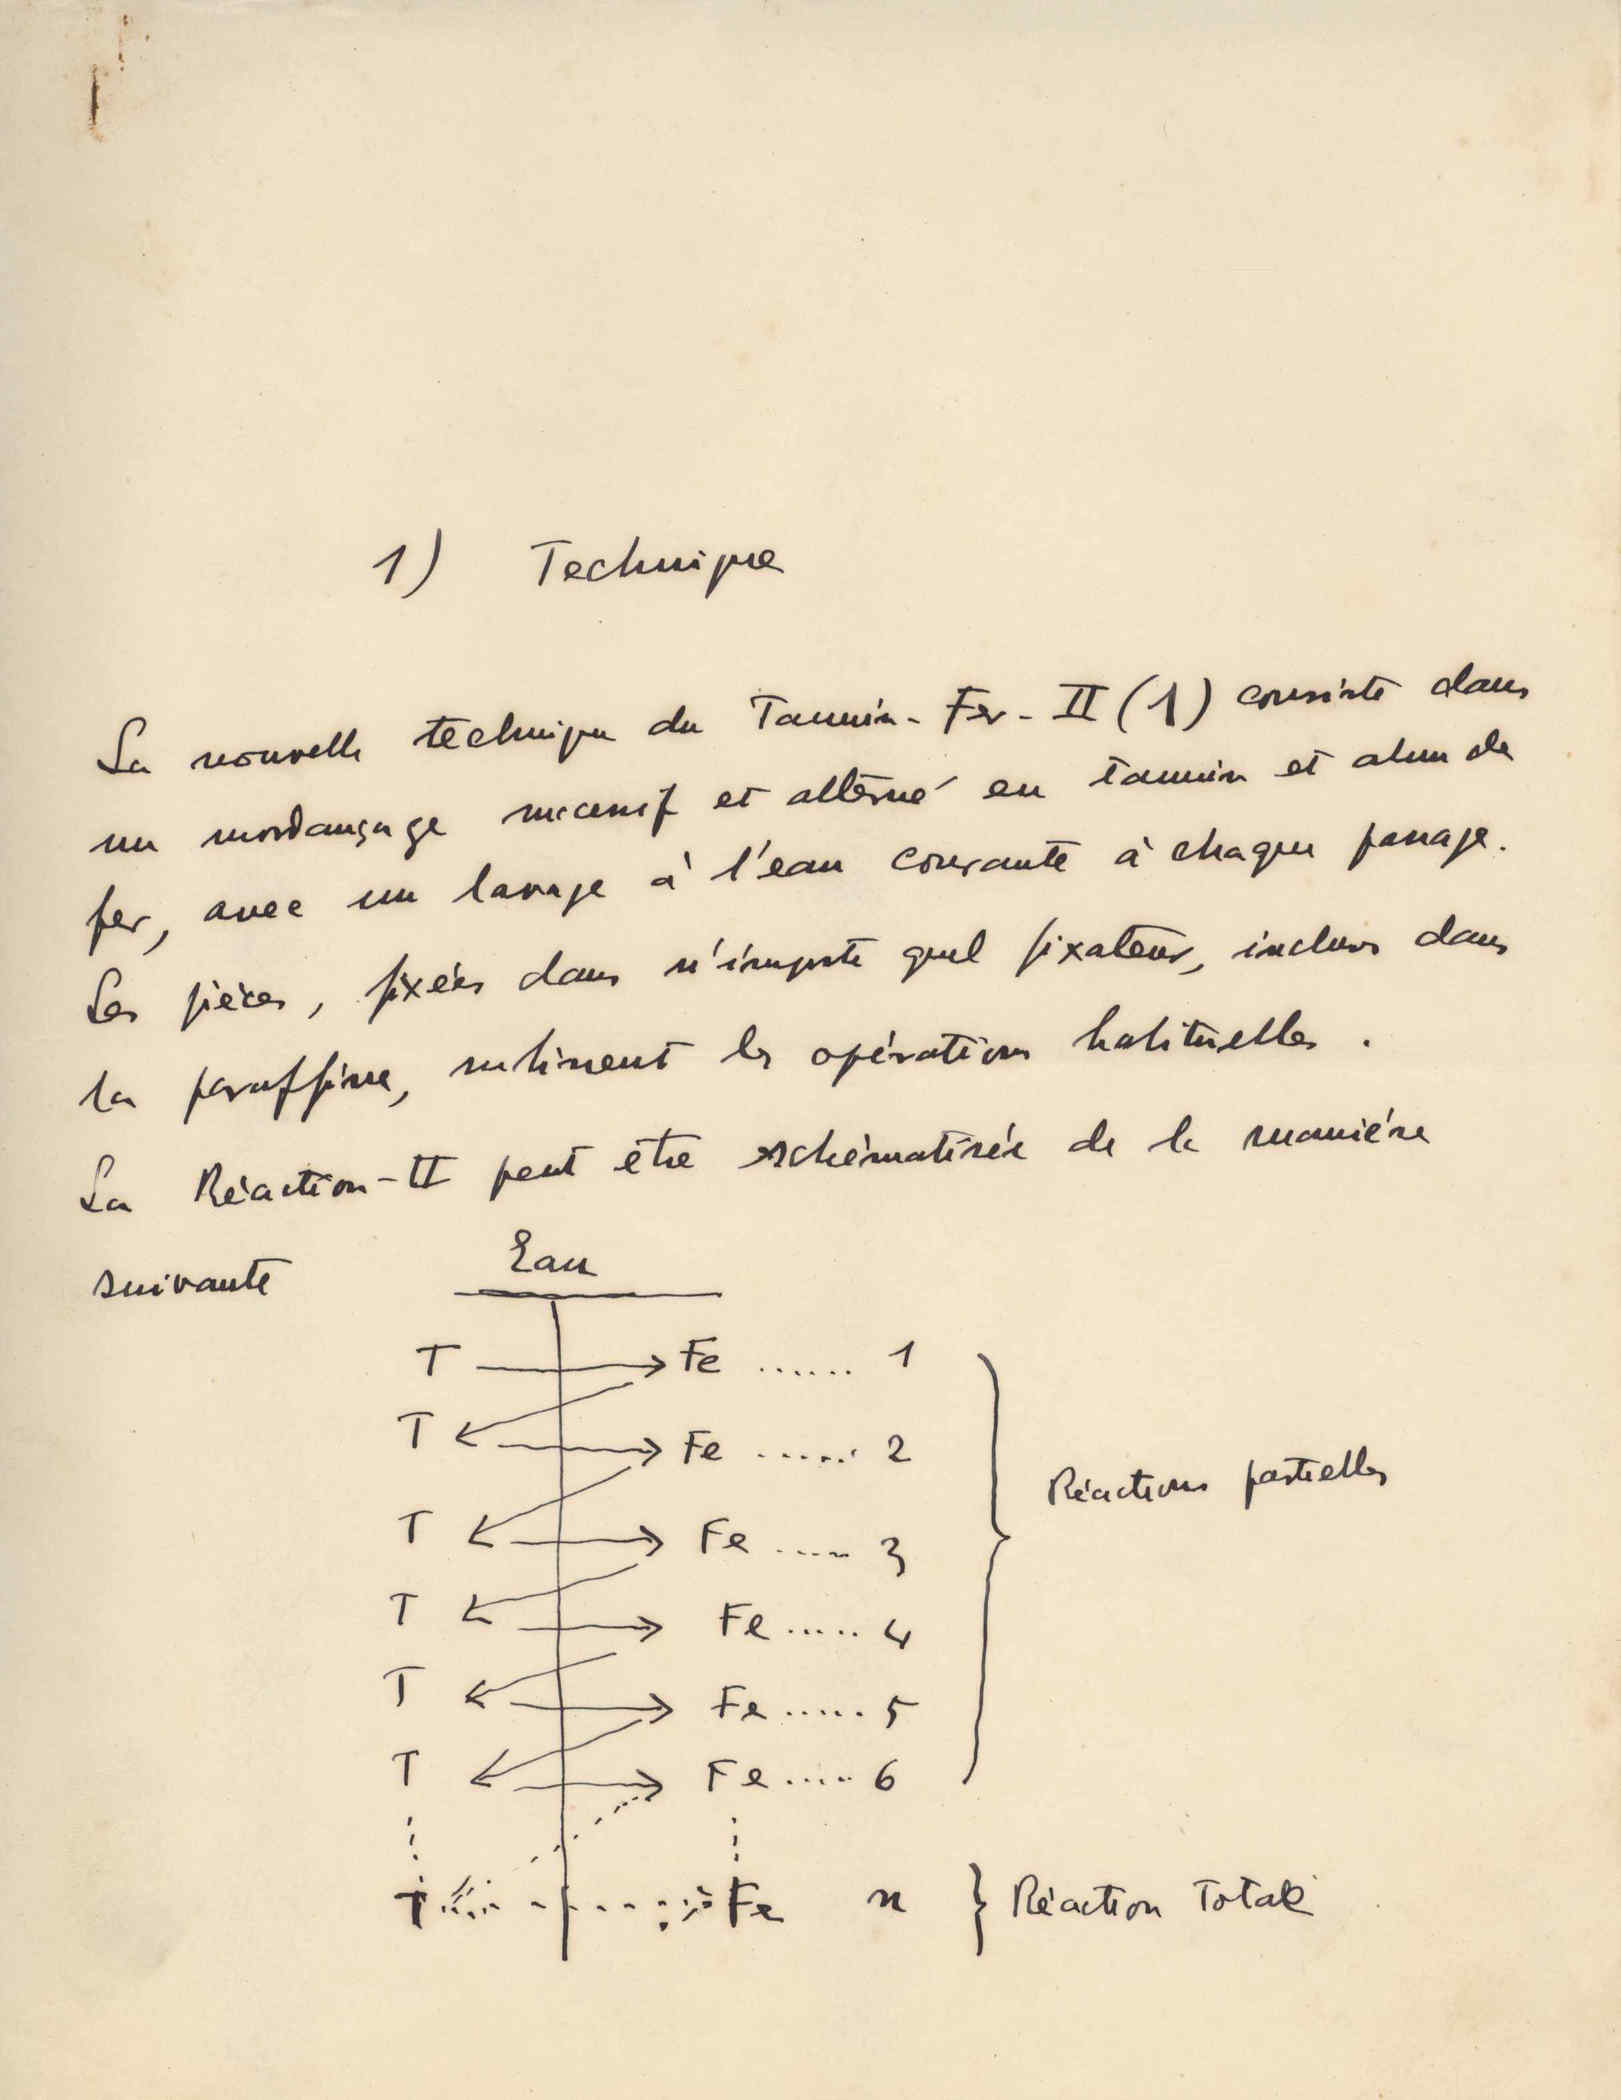 1) Technique
La nouvelle technique du Tannin-Fer-II (1) consiste dans
un mordançage successif et alterné en tannin et alun de
fer, avec un lavage à l'eau courante à chaque passage.
Les pièces, fixées dans n'importe quel fixateur, inclues dans
la paraffine, subissent les opérations habituelles.
La Réaction-II peut être schématisée de la manière
suivante
Eau
T Fe ...... 1
T Fe ...... 2
T Fe ..... 3
T Fe ..... 4
T Fe ..... 5
T Fe ..... 6
Réactions partielles
T Fe n } Réaction Totale